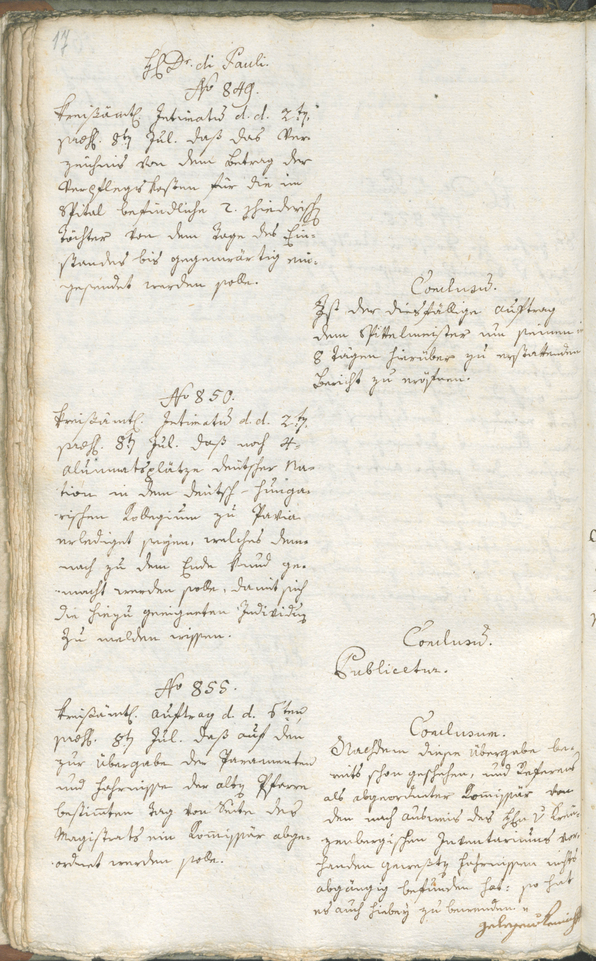 17
H. Dr. di Pauli.
No 849.
Kreißämtl. Intimatum d. d. 2ten
praes. 8ten Jul. daß das Ver-
zeichnis von dem Betrag der
Verpflegskosten für die im
Spital befindliche 2.
töchter von dem Tage des Ein-
standes bis gegenwärtig ein-
gesendet werden solle.
Conclusum.
Ist der diesfällige Auftrag
dem Spittelmeister um seinen in
8 Tägen hierüber zu erstattenden
Bericht zu eröfnen.
No 850.
Kreißämtl. Intimatum d. d. 2ten
praes. 8ten Jul. daß noch 4
Alumnatsplätze deutscher Na-
tion in dem deutsch-hunga-
rischen Kollegium zu Pavia
erlediget seyen, welches dem-
nach zu dem Ende kund ge-
macht werden solle, damit sich
die hiezu geeigneten Individuen
zu melden wissen.
Conclusum.
Publicetur.
No 855.
Kreißämtl. Auftrag d. d. 5ten
praes. 8ten Jul. daß auf den
zur Übergabe der Paramenten
und Fahrnisse der alten Pfarre
bestimten Tag von Seite des
Magistrats ein Komissär abge-
ordnet werden solle.
Conclusum.
Nachdem diese Übergabe be-
reits schon geschehen, und Referens
als abgeordneter Komissär von
den nach Ausweis des
Inventariums vor-
handen gewesten Fahrnissen nichts
abgängig befunden hat: so hat
es auch hiebey zu bewenden.